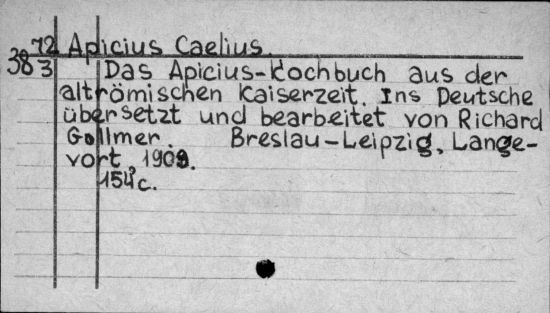 72 Apicius Caelius.
38 3 Das Apicius-Kochbuch aus der
altrömischen Kaiserzeit. Ins Deutsche
übersetzt und bearbeitet von Richard
Gollmer. Breslau-Leipzig, Lange-
vort, 1909.
154 c.